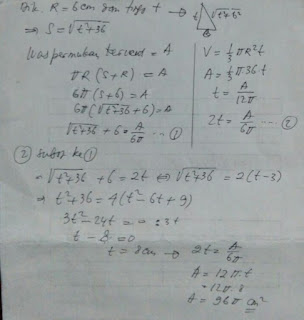 Dik. R = 6cm dan tinggi t → t √t²+6²
⇒ S = √t²+36
Luas permukaan kerucut = A
πR (S+R) = A
6π (S+6) = A
6π (√t²+36 + 6) = A
√t²+36 + 6 = A/6π ... ①
V = 1/3 πR²t
A = 1/3 π36t
t = A/12π
2t = A/6π ... ②
② subst ke ①
√t²+36 + 6 = 2t ⇔ √t²+36 = 2(t-3)
⇒ t²+36 = 4(t²-6t+9)
3t²-24t = 0 :3t
t - 8 = 0
t = 8cm → 2t = A/6π
A = 12πt
= 12π.8
A = 96π cm²